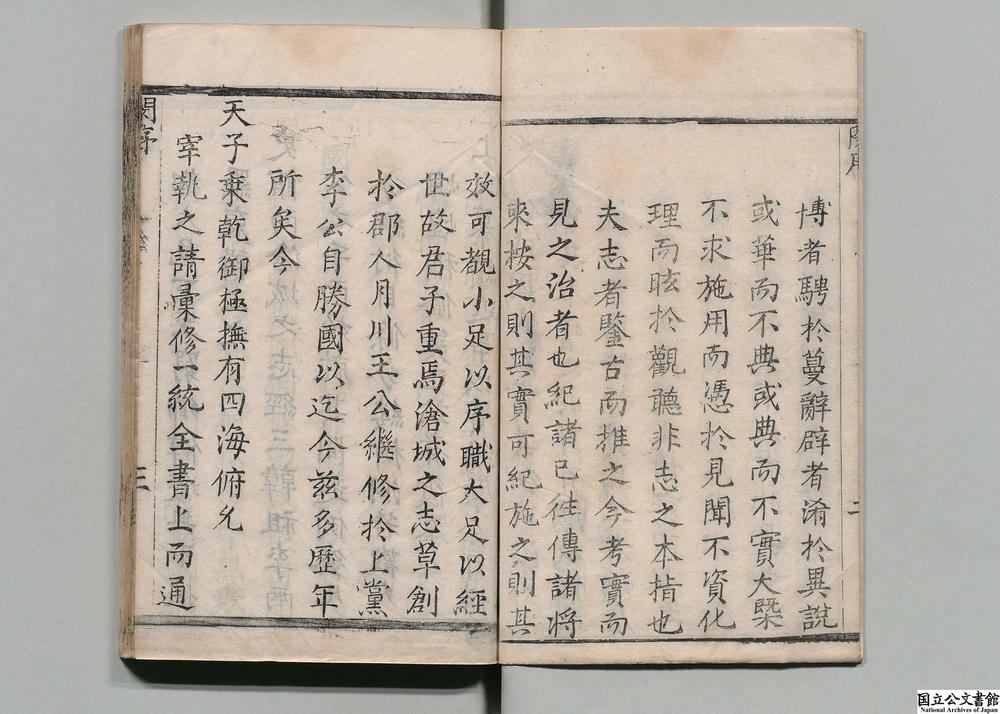 博者騁於蔓辭辟者淆於異說
或華而不典或典而不實大槩
不求施用而憑於見聞不資化
理而眩於觀聽非志之本指也
夫志者鑒古而推之今考實而
見之治者也紀諸已徃傳諸將
來按之則其實可紀施之則其
效可觀小足以序職大足以經
世故君子重焉滄城之志草創
於郡人月川王公繼修於上黨
李公自勝國以迄今茲多歷年
所矣今
天子乗乾御極撫有四海俯允
宰執之請彙修一統全書上而通
二
三
国立公文書館
National Archives of Japan